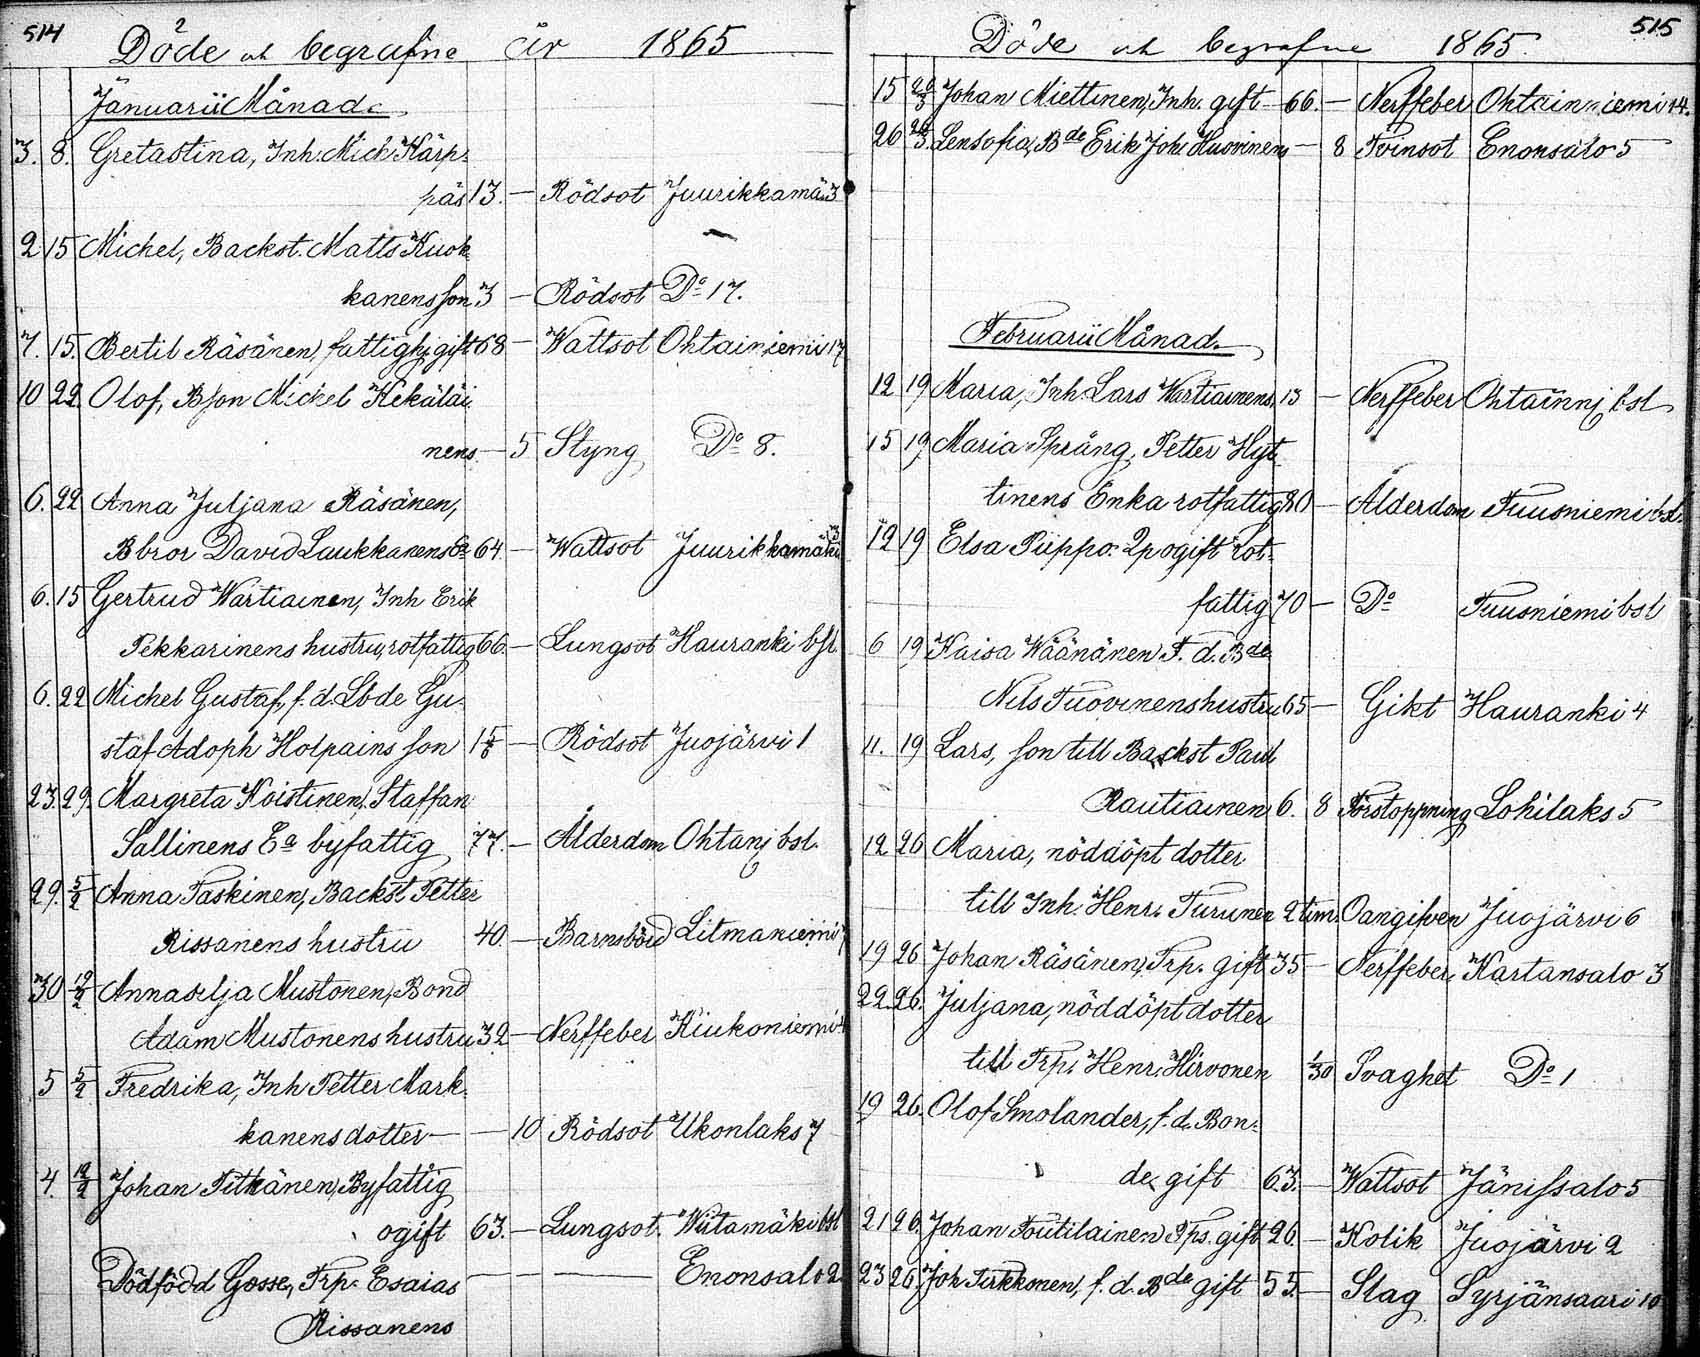 514
Döde och begrafne år 1865
Januarii Månad.
3. 8. Gretastina, Inh. Mich Kärp-
päs 13. — Rödsot Juurikkamä. 3
2 15 Michel, Backst. Matts Kuok-
kanens son 3 — Rödsot Do 17.
7. 15. Bertil Räsänen, fattighj. gift 68 — Wattsot Ohtainiemi 17
10 22. Olof, Bson Michel Kekäläi-
nens — 5 Styng Do 8.
6. 22 Anna Juljana Räsänen,
Bbror David Laukkanens Ea 64. — Wattsot Juurikkamäki
6. 15 Gertrud Wartiainen, Inh Erik
Pekkarinens hustru, rotfattig 66. — Lungsot Hauranki bsl
6. 22 Michel Gustaf, f. d. Lbde Gu-
staf Adoph Holpains son 1 5/6 — Rödsot Juojärvi 1
23. 29. Margreta Koistinen, Staffan
Sallinens Ea byfattig 77. — Ålderdom Ohtanj bsl.
29. 5/2 Anna Taskinen, Backst Petter
Rissanens hustru 40. — Barnsbörd Litmaniemi 7
30 12/2 Annaselja Mustonen, Bond
Adam Mustonens hustru 32 — Nerffeber Kiukoniemi
5 5/2 Fredrika, Inh Petter Mark-
kanens dotter — — 10 Rödsot Ukonlaks 7
4. 12/2 Johan Pitkänen, Byfattig
ogift 63. — Lungsot. Wiitamäki bsl
Dödfödd Gosse, Trp. Esaias — — — Enonsalo 2.
Rissanens
515
Döde och begrafne 1865.
15 26/3 Johan Miettinen, Inh. gift — 66. — Nerffeber Ohtainiemi 14.
26 26/3. Lensofia, Bde Erik Joh. Huovinens — 8 Tvinsot Enonsalo 5
Februarii Månad.
12 19 Maria, Inh. Lars Wartiainens 13 — Nerffeber Ohtainnj bsl
15 19 Maria Spräng, Petter Hyt-
tinens Enka rotfattig 80 — Ålderdom Tuusniemi bsl.
12 19 Elsa Puppo. 2p ogift rot-
fattig 70 — Do Tuusniemi bsl
6 19 Kaisa Wäänänen F. d. Bde
Nils Tuovinens hustru 65 — Gikt Hauranki 4
11. 19 Lars, son till Backst Paul
Rautiainen 6. 8 Förstoppning Lohilaks 5
12 26 Maria, nöddöpt dotter
till Inh. Henr. Turunen 2 tim. Oangifven Juojärvi 6
19 26 Johan Räsänen, Trp. gift 35 — Nerffeber Kartansalo 3
22. 26. Juljana, nöddöpt dotter
till Trp. Henr. Hirvonen 1/30 Svaghet Do 1
19 26. Olof Smolander, f. d. Bon-
de, gift 63. — Wattsot Jänissalo 5
21 26. Johan Poutilainen Tps. gift 26. — Kolik Juojärvi 2
23 26. Joh. Tirkkonen, f. d. Bde gift 55. — Slag Syrjänsaari 10